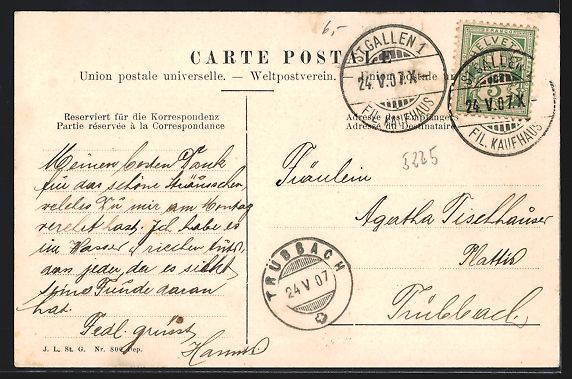 6,-
CARTE POSTALE
Union postale universelle. — Weltpostverein. Union postale un
Reserviert für die Korrespondenz
Partie réservée à la Correspondance
Adresse des Empfängers
Adresse du Destinataire
ST. GALLEN 1
24.V.07.X
FIL. KAUFHAUS
FRANCO
HELVETIA
5
ST. GALLEN 1
24.V.07.X
FIL. KAUFHAUS
5225
Meinen besten Dank
für das schöne Sträusschen,
welches Du mir am Montag
verehrt hast. Ich habe es
im Wasser
dass jeder, der es sieht
seine Freude daran
hat.
Fedl. grüsst
Fräulein
Agatha Tischhauser
Plattis
Trübbach
TRÜBBACH
24 V 07
J. L. St. G. Nr. 800 Dep.